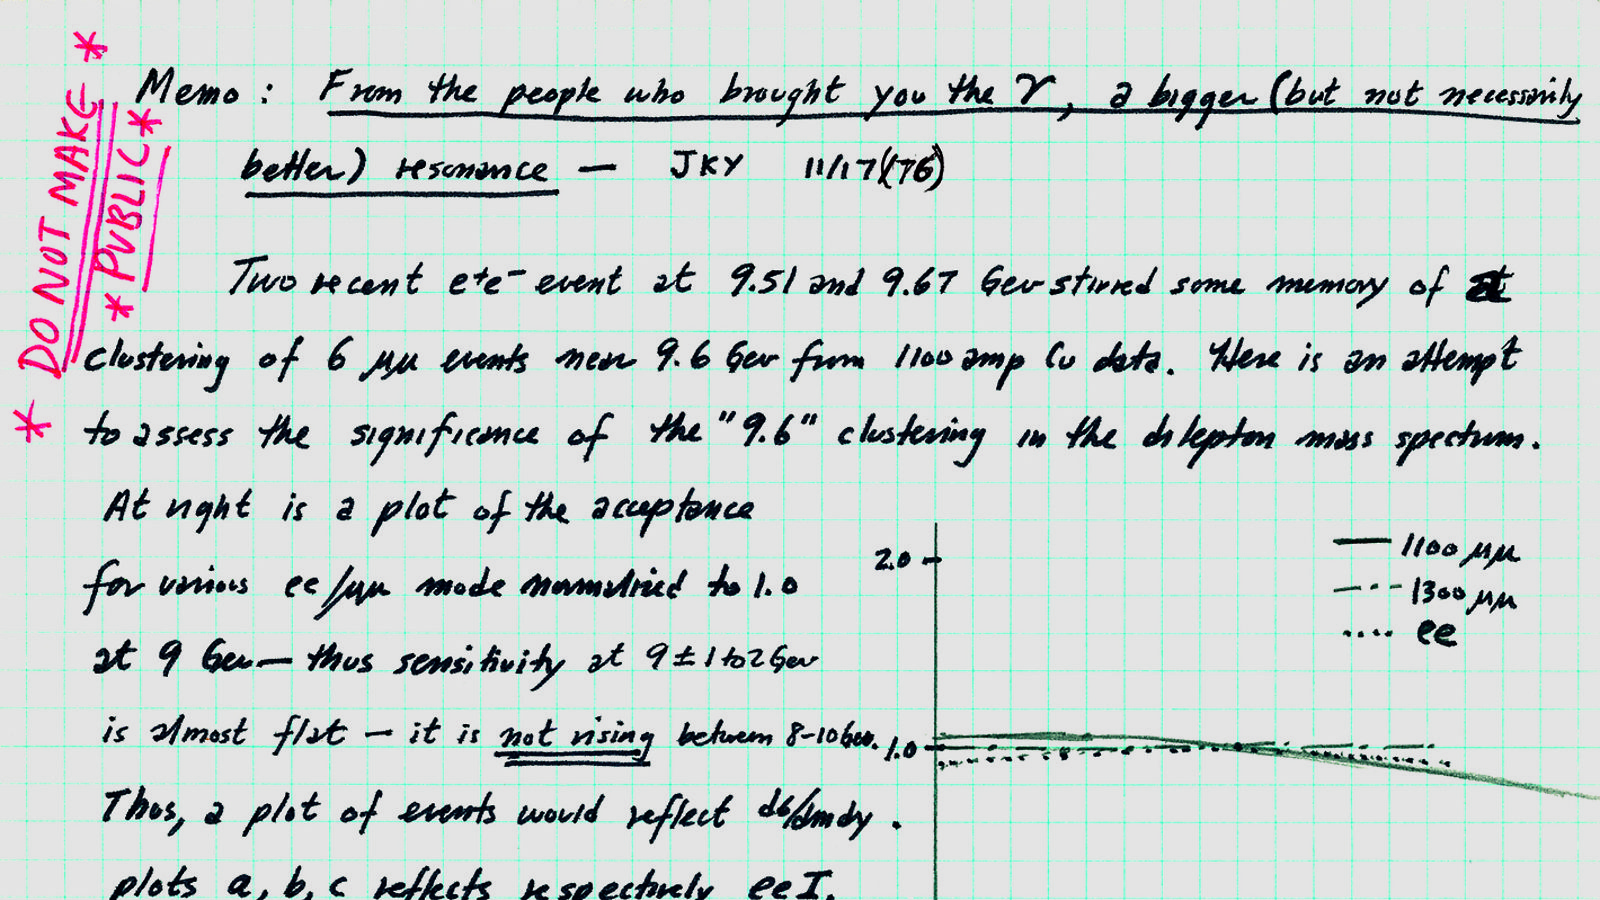 * DO NOT MAKE *
* PUBLIC *
Memo : From the people who brought you the ϒ, a bigger (but not necessarily
better) resonance — JKY 11/17(76)
Two recent e+e− event at 9.51 and 9.67 Gev stirred some memory of a
clustering of 6 μμ events near 9.6 Gev from 1100 amp Cu data. Here is an attempt
to assess the significance of the "9.6" clustering in the dilepton mass spectrum.
At right is a plot of the acceptance
for various ee/μμ mode normalized to 1.0
at 9 Gev — thus sensitivity at 9 ± 1 to 2 Gev
is almost flat — it is not rising between 8-10 Gev.
Thus, a plot of events would reflect dσ/dmdy .
plots a, b, c reflects respectively ee I,
2.0
1100 μμ
1300 μμ
ee
1.0